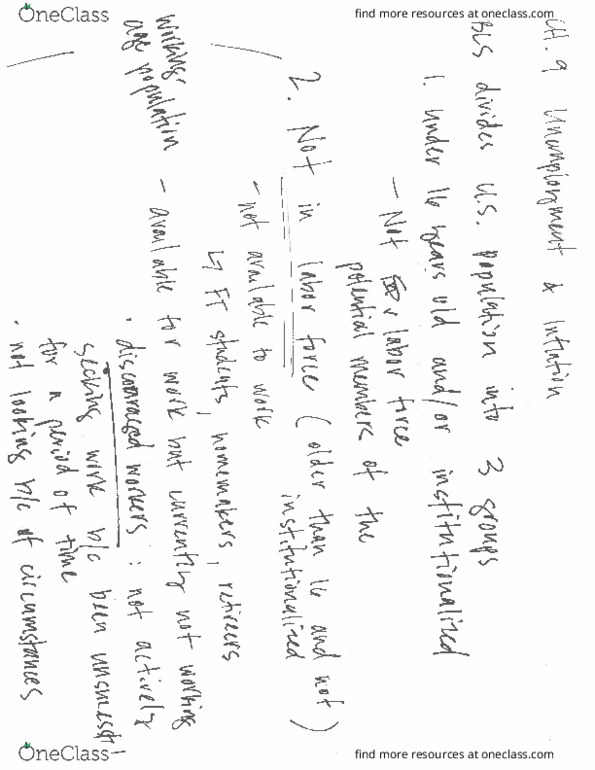 OneClass
find more resources at oneclass.com
CH. 9 Unemployment & Inflation
BLS divides U.S. population into 3 groups
1. under 16 years old and/or institutionalized
- Not labor force
potential members of the
2. Not in labor force (older than 16 and not institutionalized)
- not available to work
↳ FT students, homemakers, retirees
working-
age population
- available for work but currently not working
• discouraged workers : not actively
seeking work b/c been unsuccessful
for a period of time
• not looking b/c of circumstances
OneClass
find more resources at oneclass.com